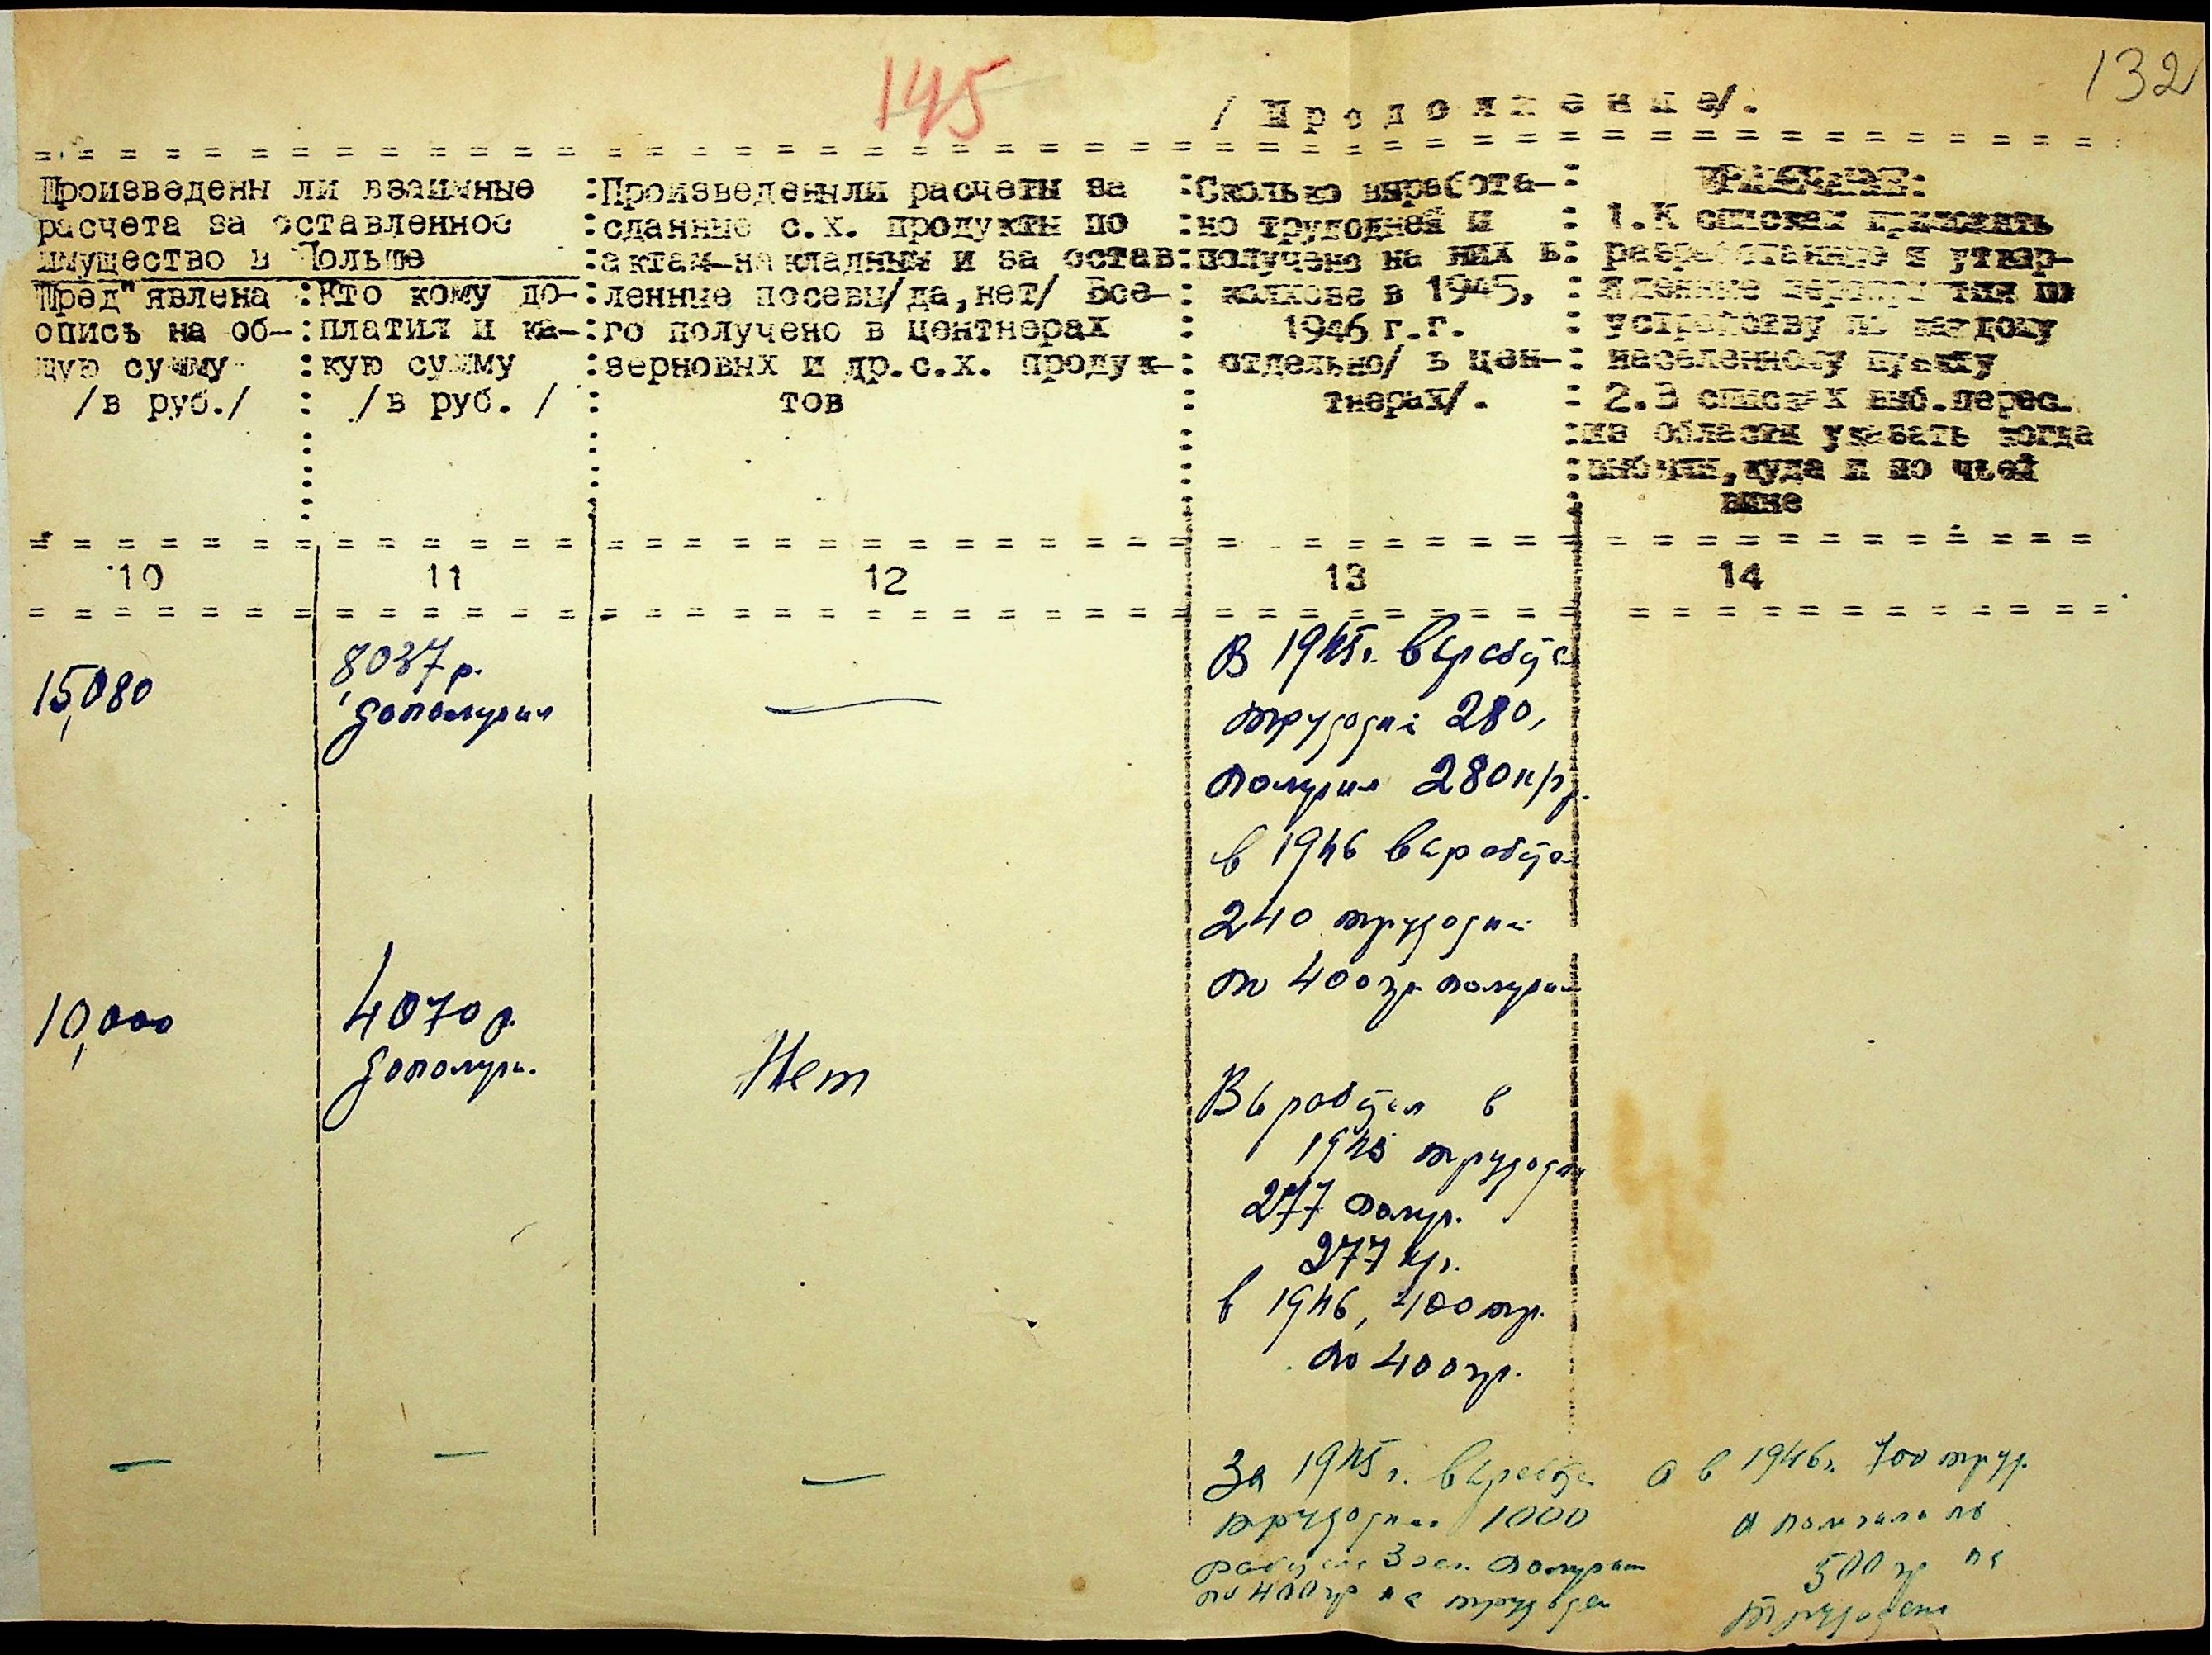 145
132
/ П р о д о л ж е н и е/.
Произведены ли взаимные
расчета за оставленное
имущество в Польше
Пред"явлена
опись на об-
щую сумму
/в руб./
Кто кому до-
платил и ка-
кую сумму
/в руб. /
Произведены ли расчеты за
сданные с.х. продукты по
актам-накладным и за остав
ленные посевы/да,нет/ Все-
го получено в центнерах
зерновых и др.с.х. продук-
тов
Сколько выработа-
но трудодней и
получено на них в
колхозе в 1945,
1946 г.г.
отдельно/ в цен-
тнерах/.
Примечание:
1.К спискам приложить
разработанные и утвер-
жденные мероприятия по
устройству по каждому
населенному пункту
2.В списках выб.перес.
из области указать когда
выбыли,куда и по чьей
вине
10
11
12
13
14
15,080
8037 р.
дополучил
—
В 1945г. выработал
трудодней 280,
получил 280 к/гр.
в 1946 выработал
240 трудодней
по 400 гр получил
10,000
4070 р.
дополучи.
Нет
Выработал в
1945 трудодн
277 получ.
277 кг.
в 1946, 400 тр.
по 400 гр.
—
—
—
За 1945 г. выработал
трудодней 1000
3 чел. получили
по 400 гр на трудоден
а в 1946г. 700 труд.
и получили по
500 гр на
трудодень